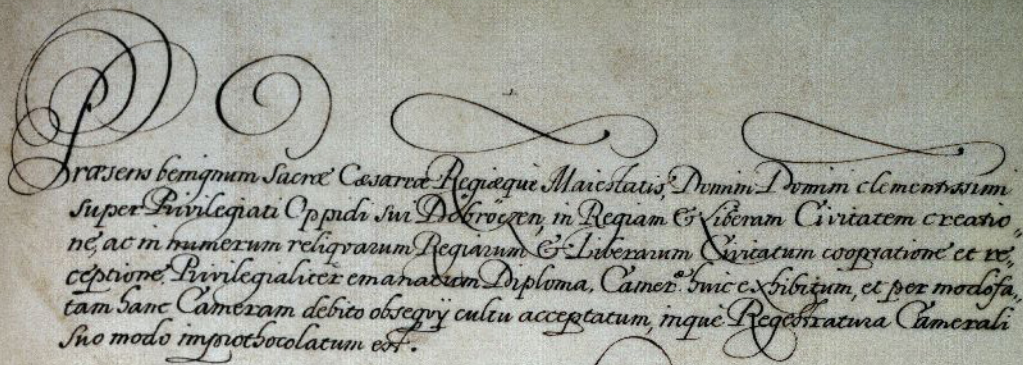 Præsens benignum Sacræ Cæsareæ Regiæquè Maiestatis, Domini Domini clementissimi
super Privilegiati Oppidi sui Debröczen, in Regiam & Liberam Civitatem creatio„
nè, ac in numerum reliqvarum Regiarum & Liberarum Civitatum cooptationè et re„
ceptionè Privilegialiter emanatum Diploma, Cameræ huic exhibitum, et per modofa„
tam hanc Cameram debito obseqvÿ cultu acceptatum, inquè Regestratura Camerali
suo modo improthocolatum est.